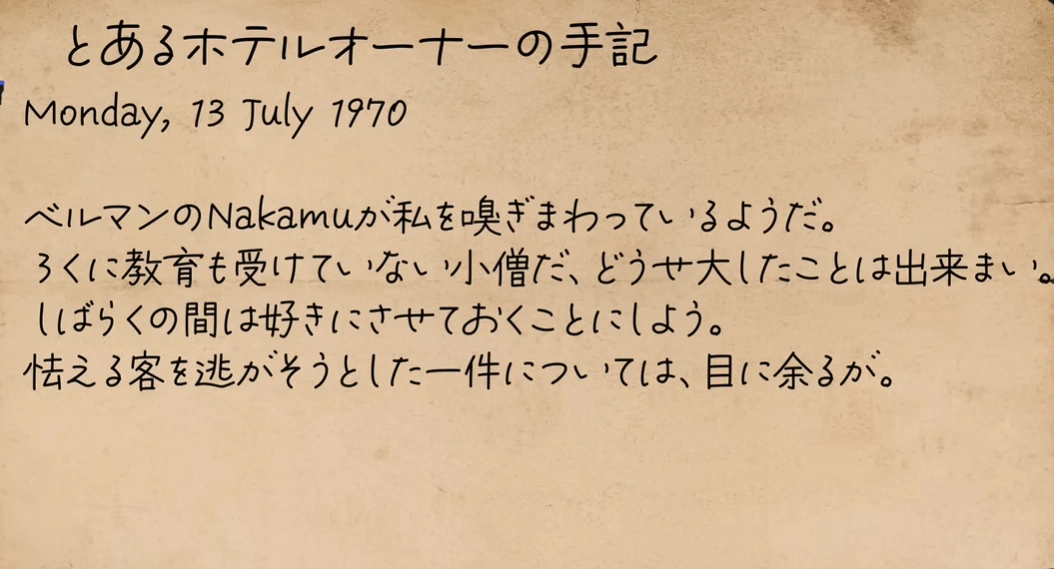 とあるホテルオーナーの手記
Monday, 13 July 1970
ベルマンのNakamuが私を嗅ぎまわっているようだ。
ろくに教育も受けていない小僧だ、どうせ大したことは出来まい。
しばらくの間は好きにさせておくことにしよう。
怯える客を逃がそうとした一件については、目に余るが。